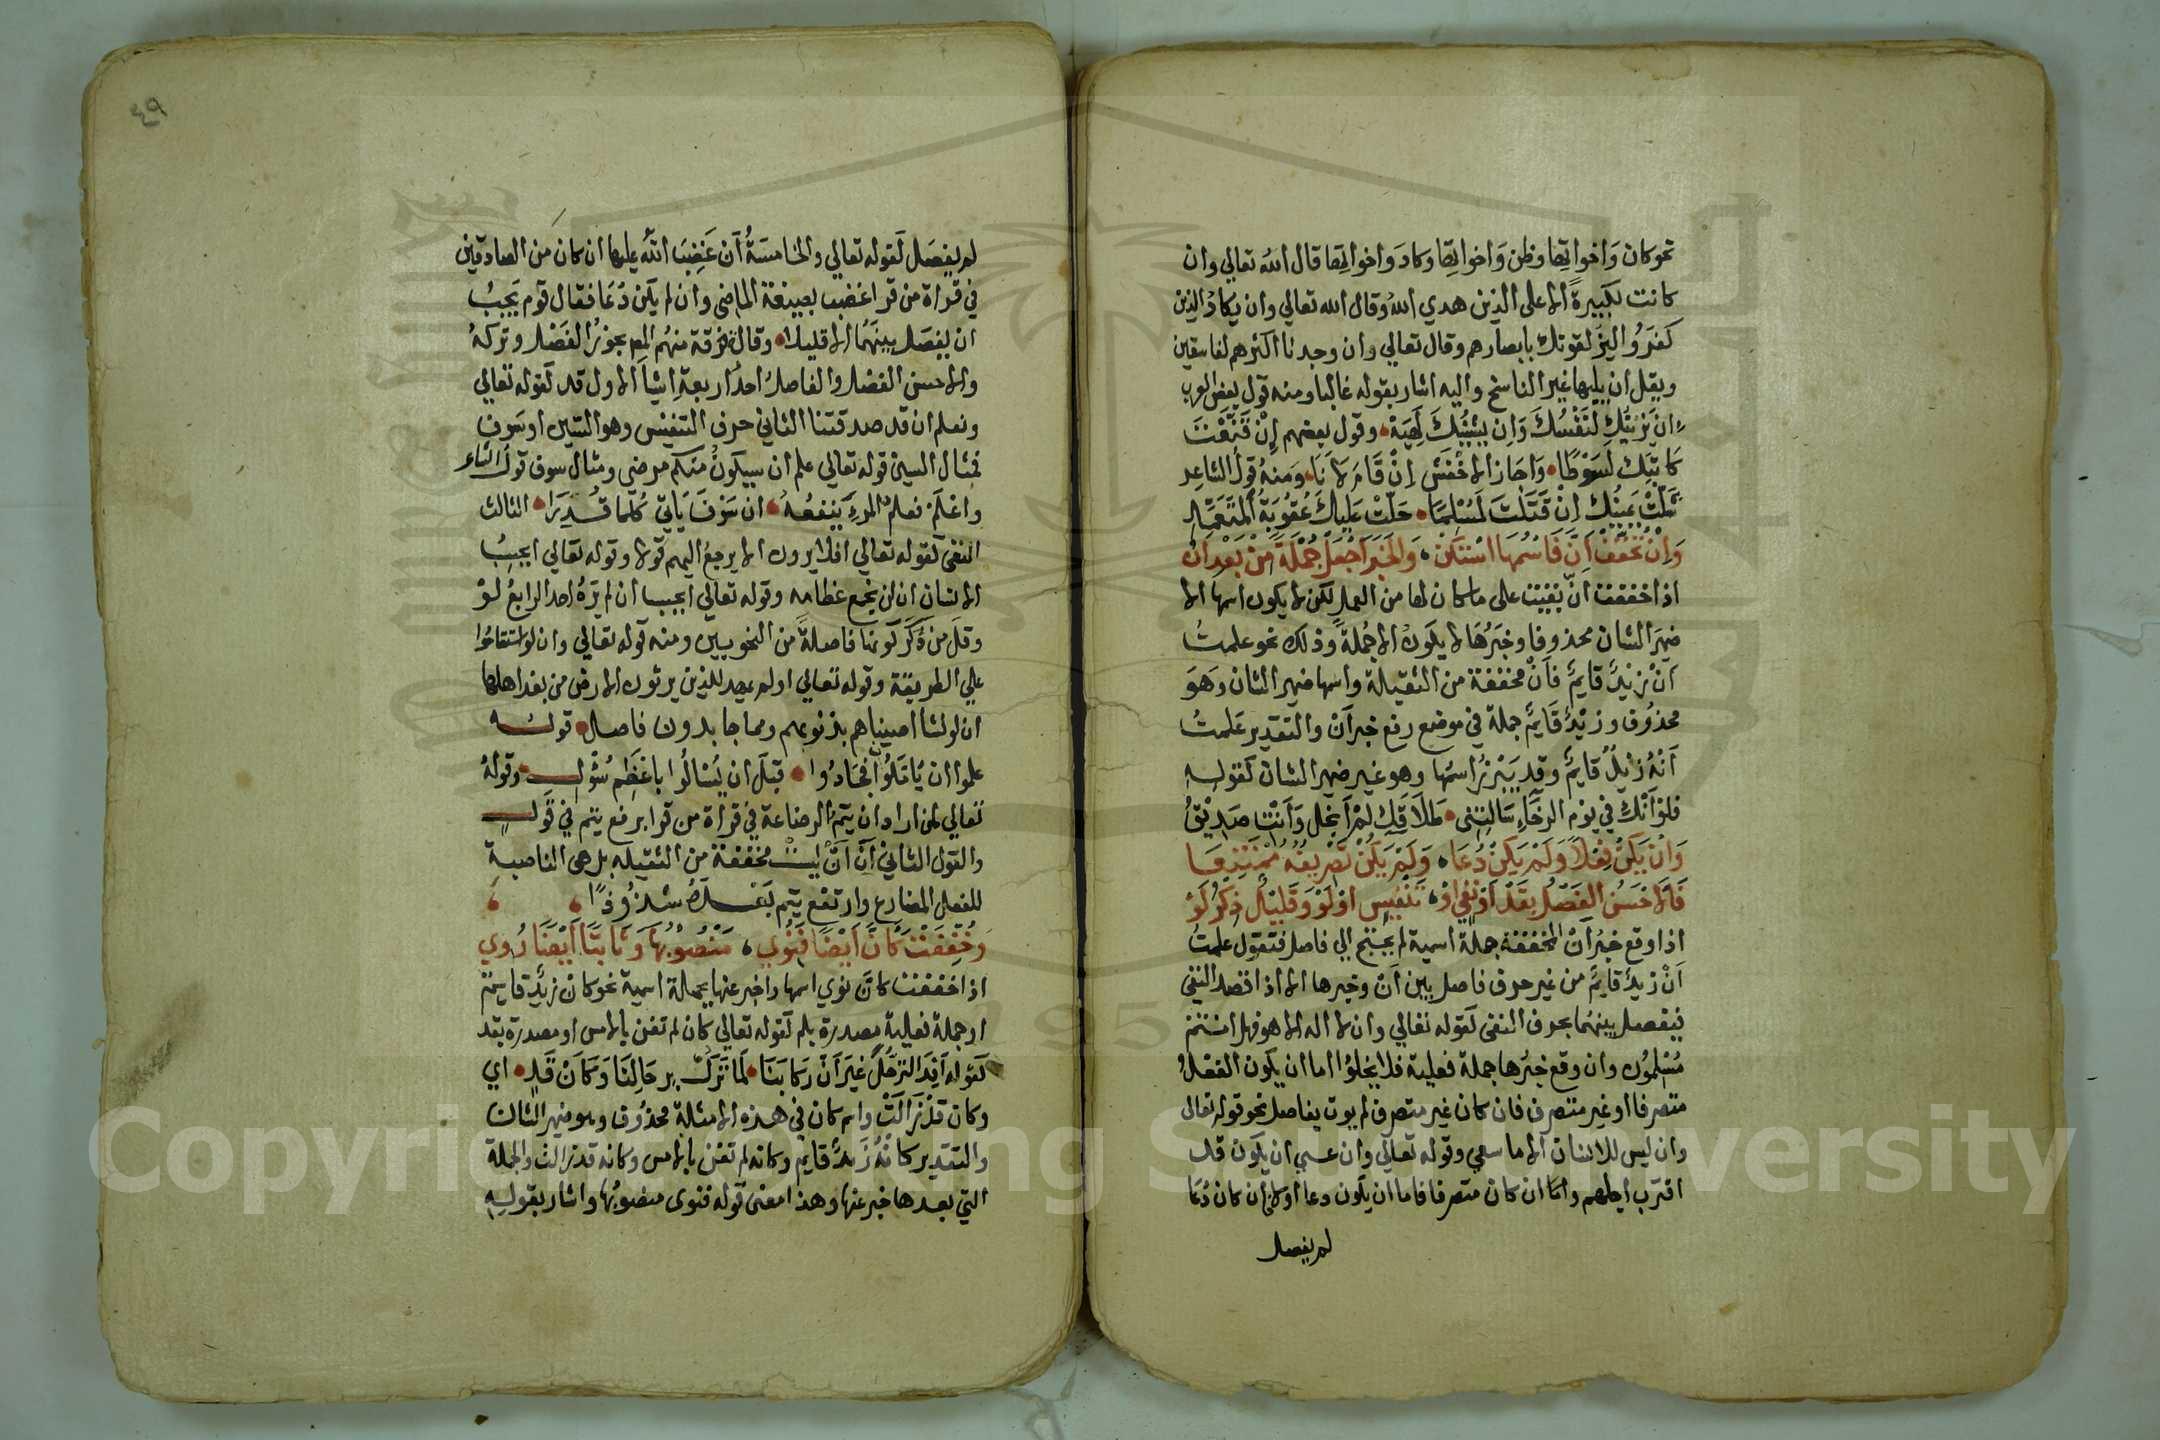 نحو كان واخواتها وظن واخواتها وكاد واخواتها قال الله تعالي وان
كانت لكبيرة الا علي الذين هدي الله وقال الله تعالي وان يكاد الذين
كفروا ليزلقونك بابصارهم وقال تعالي وان وجدنا اكثرهم لفاسقين
ويقل ان يليها غير الناسخ واليه اشار بقوله غالبا ومنه قول بعض العرب
ان يزينك لنفسك وان يشينك لهية وقول بعضهم إن قنعت
كاتبك لسوطا واجاز الاخفش إن قام لانا ومنه قول الشاعر
شلت يمينك ان قتلت لمسلما حلت عليك عقوبة المتعمد
وإن تخفف أن فاسمها استكن والخبر اجعل جملة من بعد أن
اذا خففت أن بقيت علي ما كان لها من العمل لكن لا يكون اسمها الا
ضمير الشان محذوفا وخبرها لا يكون الا جملة وذلك نحو علمت
أن زيد قايم فأن مخففة من الثقيلة واسمها ضمير الشان وهو
محذوف وزيد قايم جملة في موضع رفع خبر أن والتقدير علمت
أنه زيد قايم وقد يبرز اسمها وهو غير ضمير الشان كقوله
فلو أنك في يوم الرخاء سالتني طلاقك لم أبخل وأنت صديق
وان يكن فعلا ولم يكن دعا ولم يكن تصريفه ممتنعا
فالاحسن الفصل بقد أو نفي او تنفيس او لو وقليل ذكر لو
اذا وقع خبر أن المخففة جملة اسمية لم يحتج الي فاصل فتقول علمت
أن زيد قايم من غير حرف فاصل بين أن وخبرها الا اذا قصد النفي
فيفصل بينهما بحرف النفي كقوله تعالي وان لا اله الا هو فهل انتم
مسلمون وان وقع خبرها جملة فعلية فلا يخلوا اما ان يكون الفعل
متصرفا او غير متصرف فان كان غير متصرف لم يوت بفاصل نحو قوله تعالي
وان ليس للانسان الا ما سعي وقوله تعالي وان عسي ان يكون قد
اقترب اجلهم واما ان كان متصرفا فاما ان يكون دعا اولا فان كان دعا
لم يفصل
٤٩
لم يفصل كقوله تعالي والخامسة أن غضب الله عليها ان كان من الصادقين
في قراة من قرا غضب بصيغة الماضي وان لم يكن دعا فقال قوم يجب
ان يفصل بينهما الا قليلا وقالت فرقة منهم المص يجوز الفصل وتركه
والاحسن الفصل والفاصل احد اربعة اشيا الاول قد كقوله تعالي
ونعلم ان قد صدقتنا الثاني حرف التنفيس وهو السين او سوف
فمثال السين قوله تعالي علم ان سيكون منكم مرضي ومثال سوف قول الشاعر
واعلم فعلم المرء ينفعه ان سوف ياتي كلما قدرا الثالث
النفي كقوله تعالي افلا يرون الا يرجع اليهم قولا وقوله تعالي ايحسب
الانسان ان لن نجمع عظامه وقوله تعالي ايحسب ان لم يره احد الرابع لو
وقل من ذكر كونها فاصلة من النحويين ومنه قوله تعالي وان لو استقاموا
علي الطريقة وقوله تعالي اولم يهد للذين يرثون الارض من بعد اهلها
ان لو نشا اصبناهم بذنوبهم ومما جا بدون فاصل قوله
علموا ان يؤملون فجادوا قبل ان يسالوا باعظم سؤل وقوله
تعالي لمن اراد ان يتم الرضاعة في قراة من قرا برفع يتم في قول
والقول الثاني أن أن ليست مخففة من الثقيله بل هي الناصبة
للفعل المضارع وارتفع يتم بعده شذوذا
وخففت كأن أيضا فنوي منصوبها وثابتا أيضا روي
اذا خففت كان نوي اسمها واخبر عنها بجملة اسمية نحو كان زيد قايم
او جملة فعلية مصدرة بلم كقوله تعالي كان لم تغن بالامس او مصدرة بقد
كقوله أفد الترحل غير أن ركابنا لما تزل برحالنا وكأن قد اي
وكان قد زالت واسم كان في هذه الامثلة محذوف وهو ضمير الشان
والتقدير كانه زيد قايم وكانه لم تغن بالامس وكانه قد زالت والجملة
التي بعدها خبر عنها وهذا معني قوله فنوي منصوبها واشار بقوله
Copyright © King Saud University